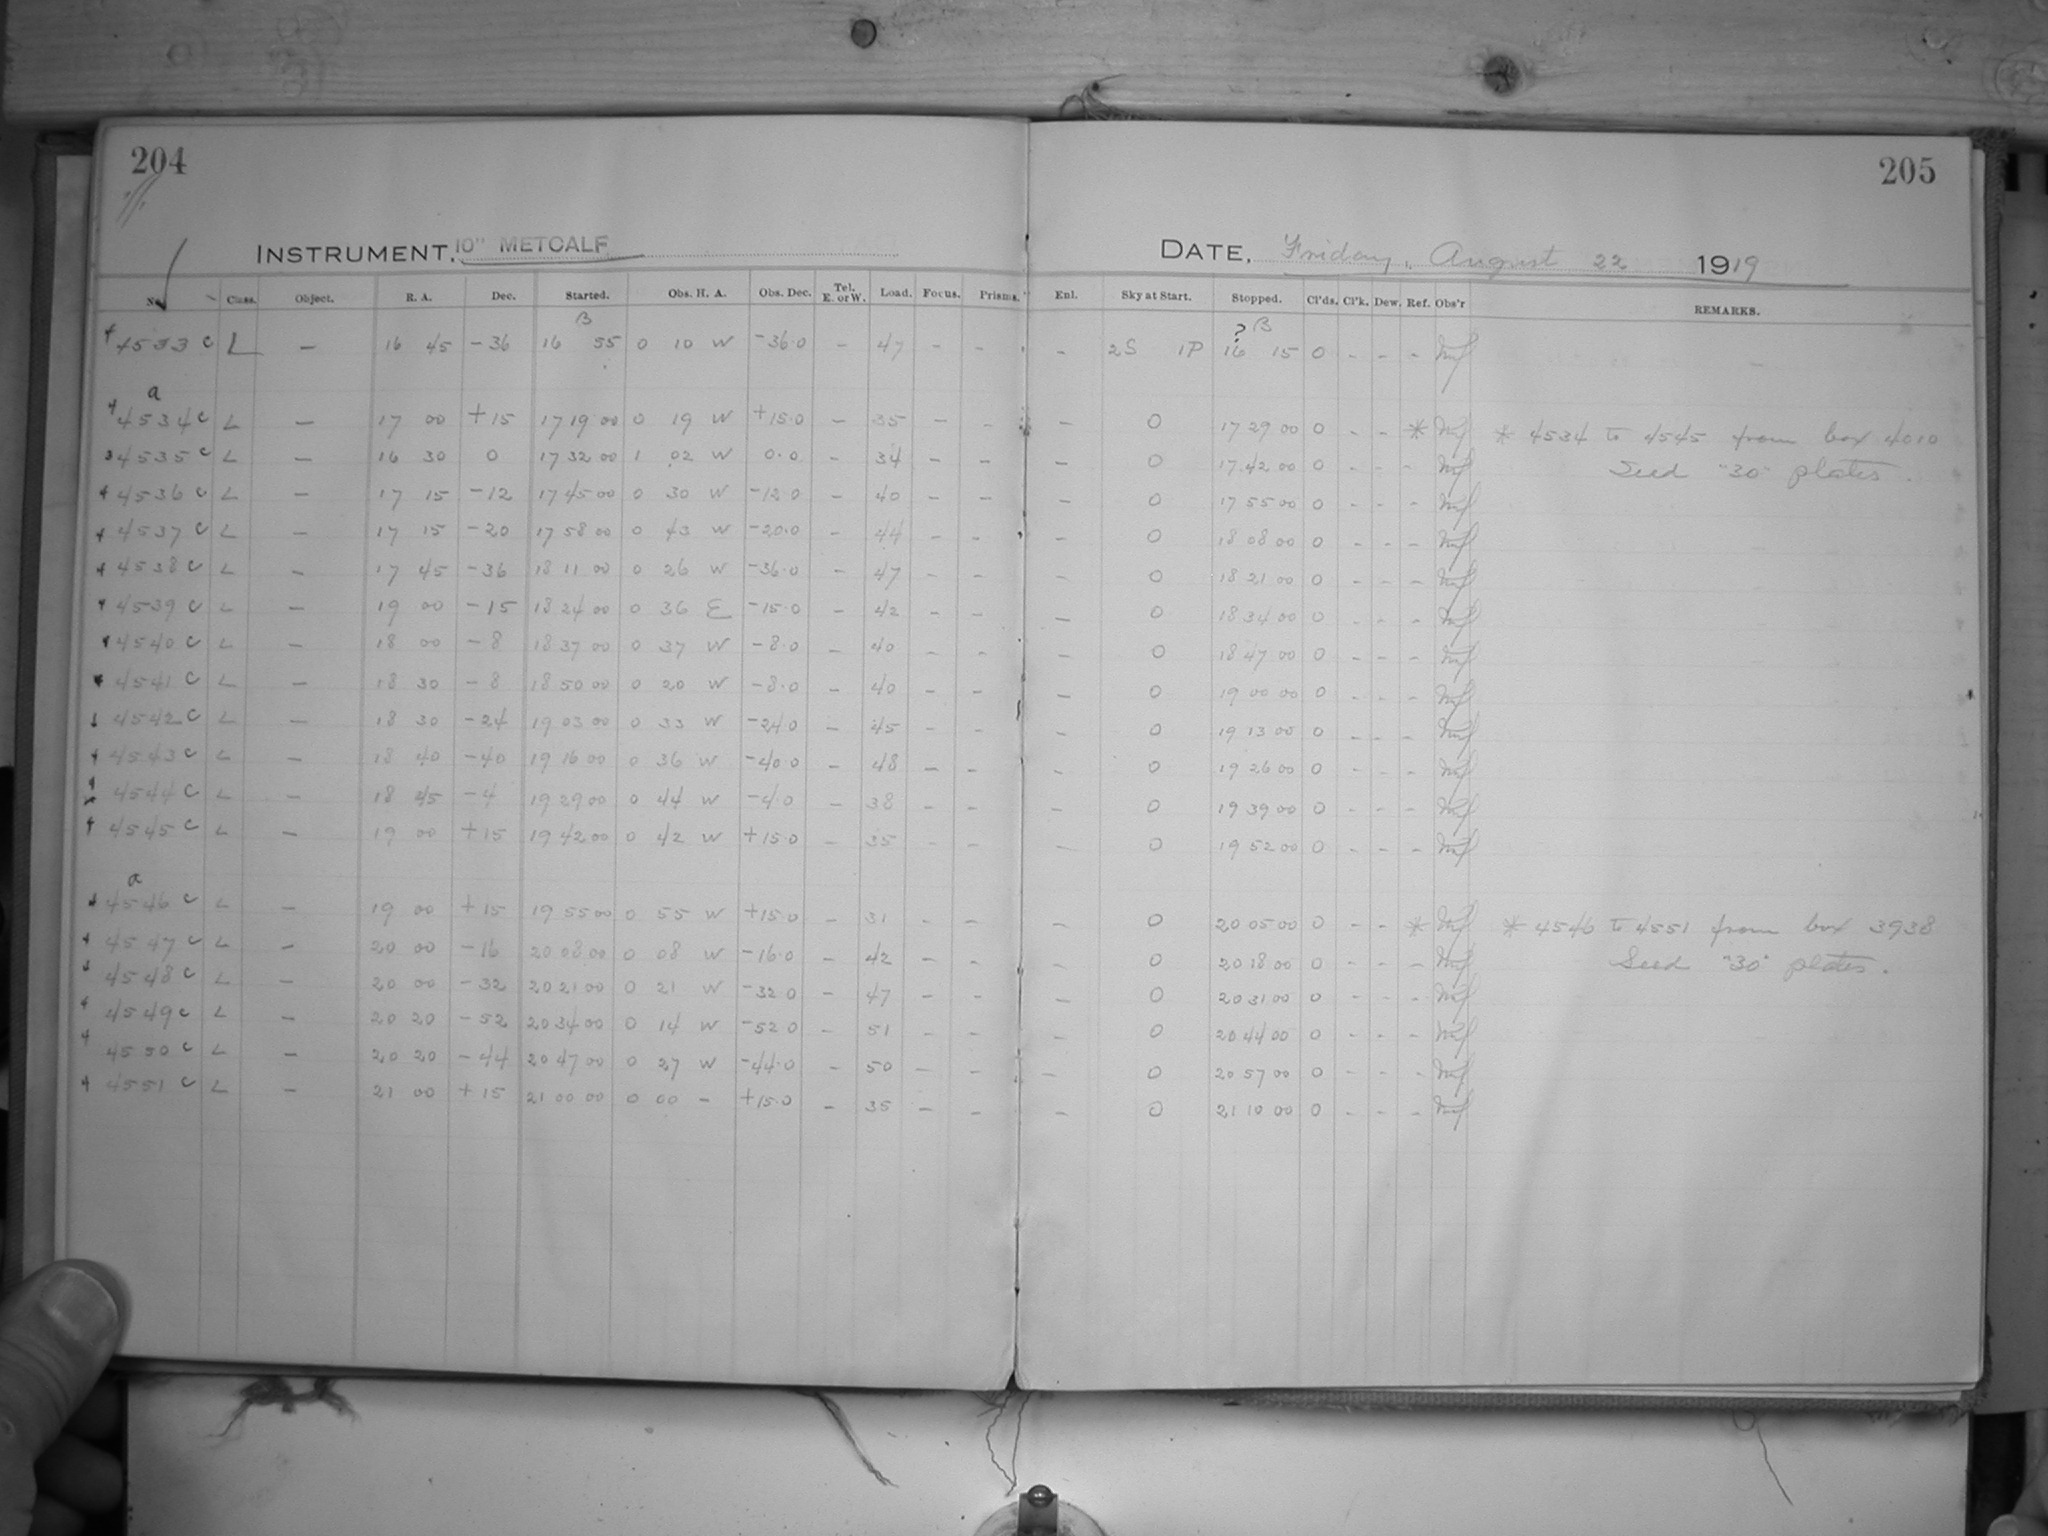 204
205
INSTRUMENT, 10" METCALF
DATE, Friday, August 22 1919
No. Class. Object. R. A. Dec. Started. Obs. H. A. Obs. Dec. Tel. E. or W. Load. Focus. Prisms. Enl. Sky at Start. Stopped. Cl'ds. Cl'k. Dew. Ref. Obs'r REMARKS.
B ? B
4533 c L — 16 45 -36 16 55 0 10 W -36.0 - 47 - - - 2S 1P 16 15 0 - - -
a
4534 c L — 17 00 +15 17 19 00 0 19 W +15.0 - 35 - - - 0 17 29 00 0 - - * * 4534 to 4545 from box 4010
4535 c L — 16 30 0 17 32 00 1 02 W 0.0 - 34 - - - 0 17 42 00 0 - - - Seed "30" plates.
4536 c L — 17 15 -12 17 45 00 0 30 W -12.0 - 40 - - - 0 17 55 00 0 - - -
4537 c L — 17 15 -20 17 58 00 0 43 W -20.0 - 44 - - - 0 18 08 00 0 - - -
4538 c L — 17 45 -36 18 11 00 0 26 W -36.0 - 47 - - - 0 18 21 00 0 - - -
4539 c L — 19 00 -15 18 24 00 0 36 E -15.0 - 42 - - - 0 18 34 00 0 - - -
4540 c L — 18 00 -8 18 37 00 0 37 W -8.0 - 40 - - - 0 18 47 00 0 - - -
4541 c L — 18 30 -8 18 50 00 0 20 W -8.0 - 40 - - - 0 19 00 00 0 - - -
4542 c L — 18 30 -24 19 03 00 0 33 W -24.0 - 45 - - - 0 19 13 00 0 - - -
4543 c L — 18 40 -40 19 16 00 0 36 W -40.0 - 48 - - - 0 19 26 00 0 - - -
4544 c L — 18 45 -4 19 29 00 0 44 W -4.0 - 38 - - - 0 19 39 00 0 - - -
4545 c L — 19 00 +15 19 42 00 0 42 W +15.0 - 35 - - - 0 19 52 00 0 - - -
a
4546 c L — 19 00 +15 19 55 00 0 55 W +15.0 - 31 - - - 0 20 05 00 0 - - * * 4546 to 4551 from box 3938
4547 c L — 20 00 -16 20 08 00 0 08 W -16.0 - 42 - - - 0 20 18 00 0 - - - Seed "30" plates.
4548 c L — 20 00 -32 20 21 00 0 21 W -32.0 - 47 - - - 0 20 31 00 0 - - -
4549 c L — 20 20 -52 20 34 00 0 14 W -52.0 - 51 - - - 0 20 44 00 0 - - -
4550 c L — 20 20 -44 20 47 00 0 27 W -44.0 - 50 - - - 0 20 57 00 0 - - -
4551 c L — 21 00 +15 21 00 00 0 00 - +15.0 - 35 - - - 0 21 10 00 0 - - -